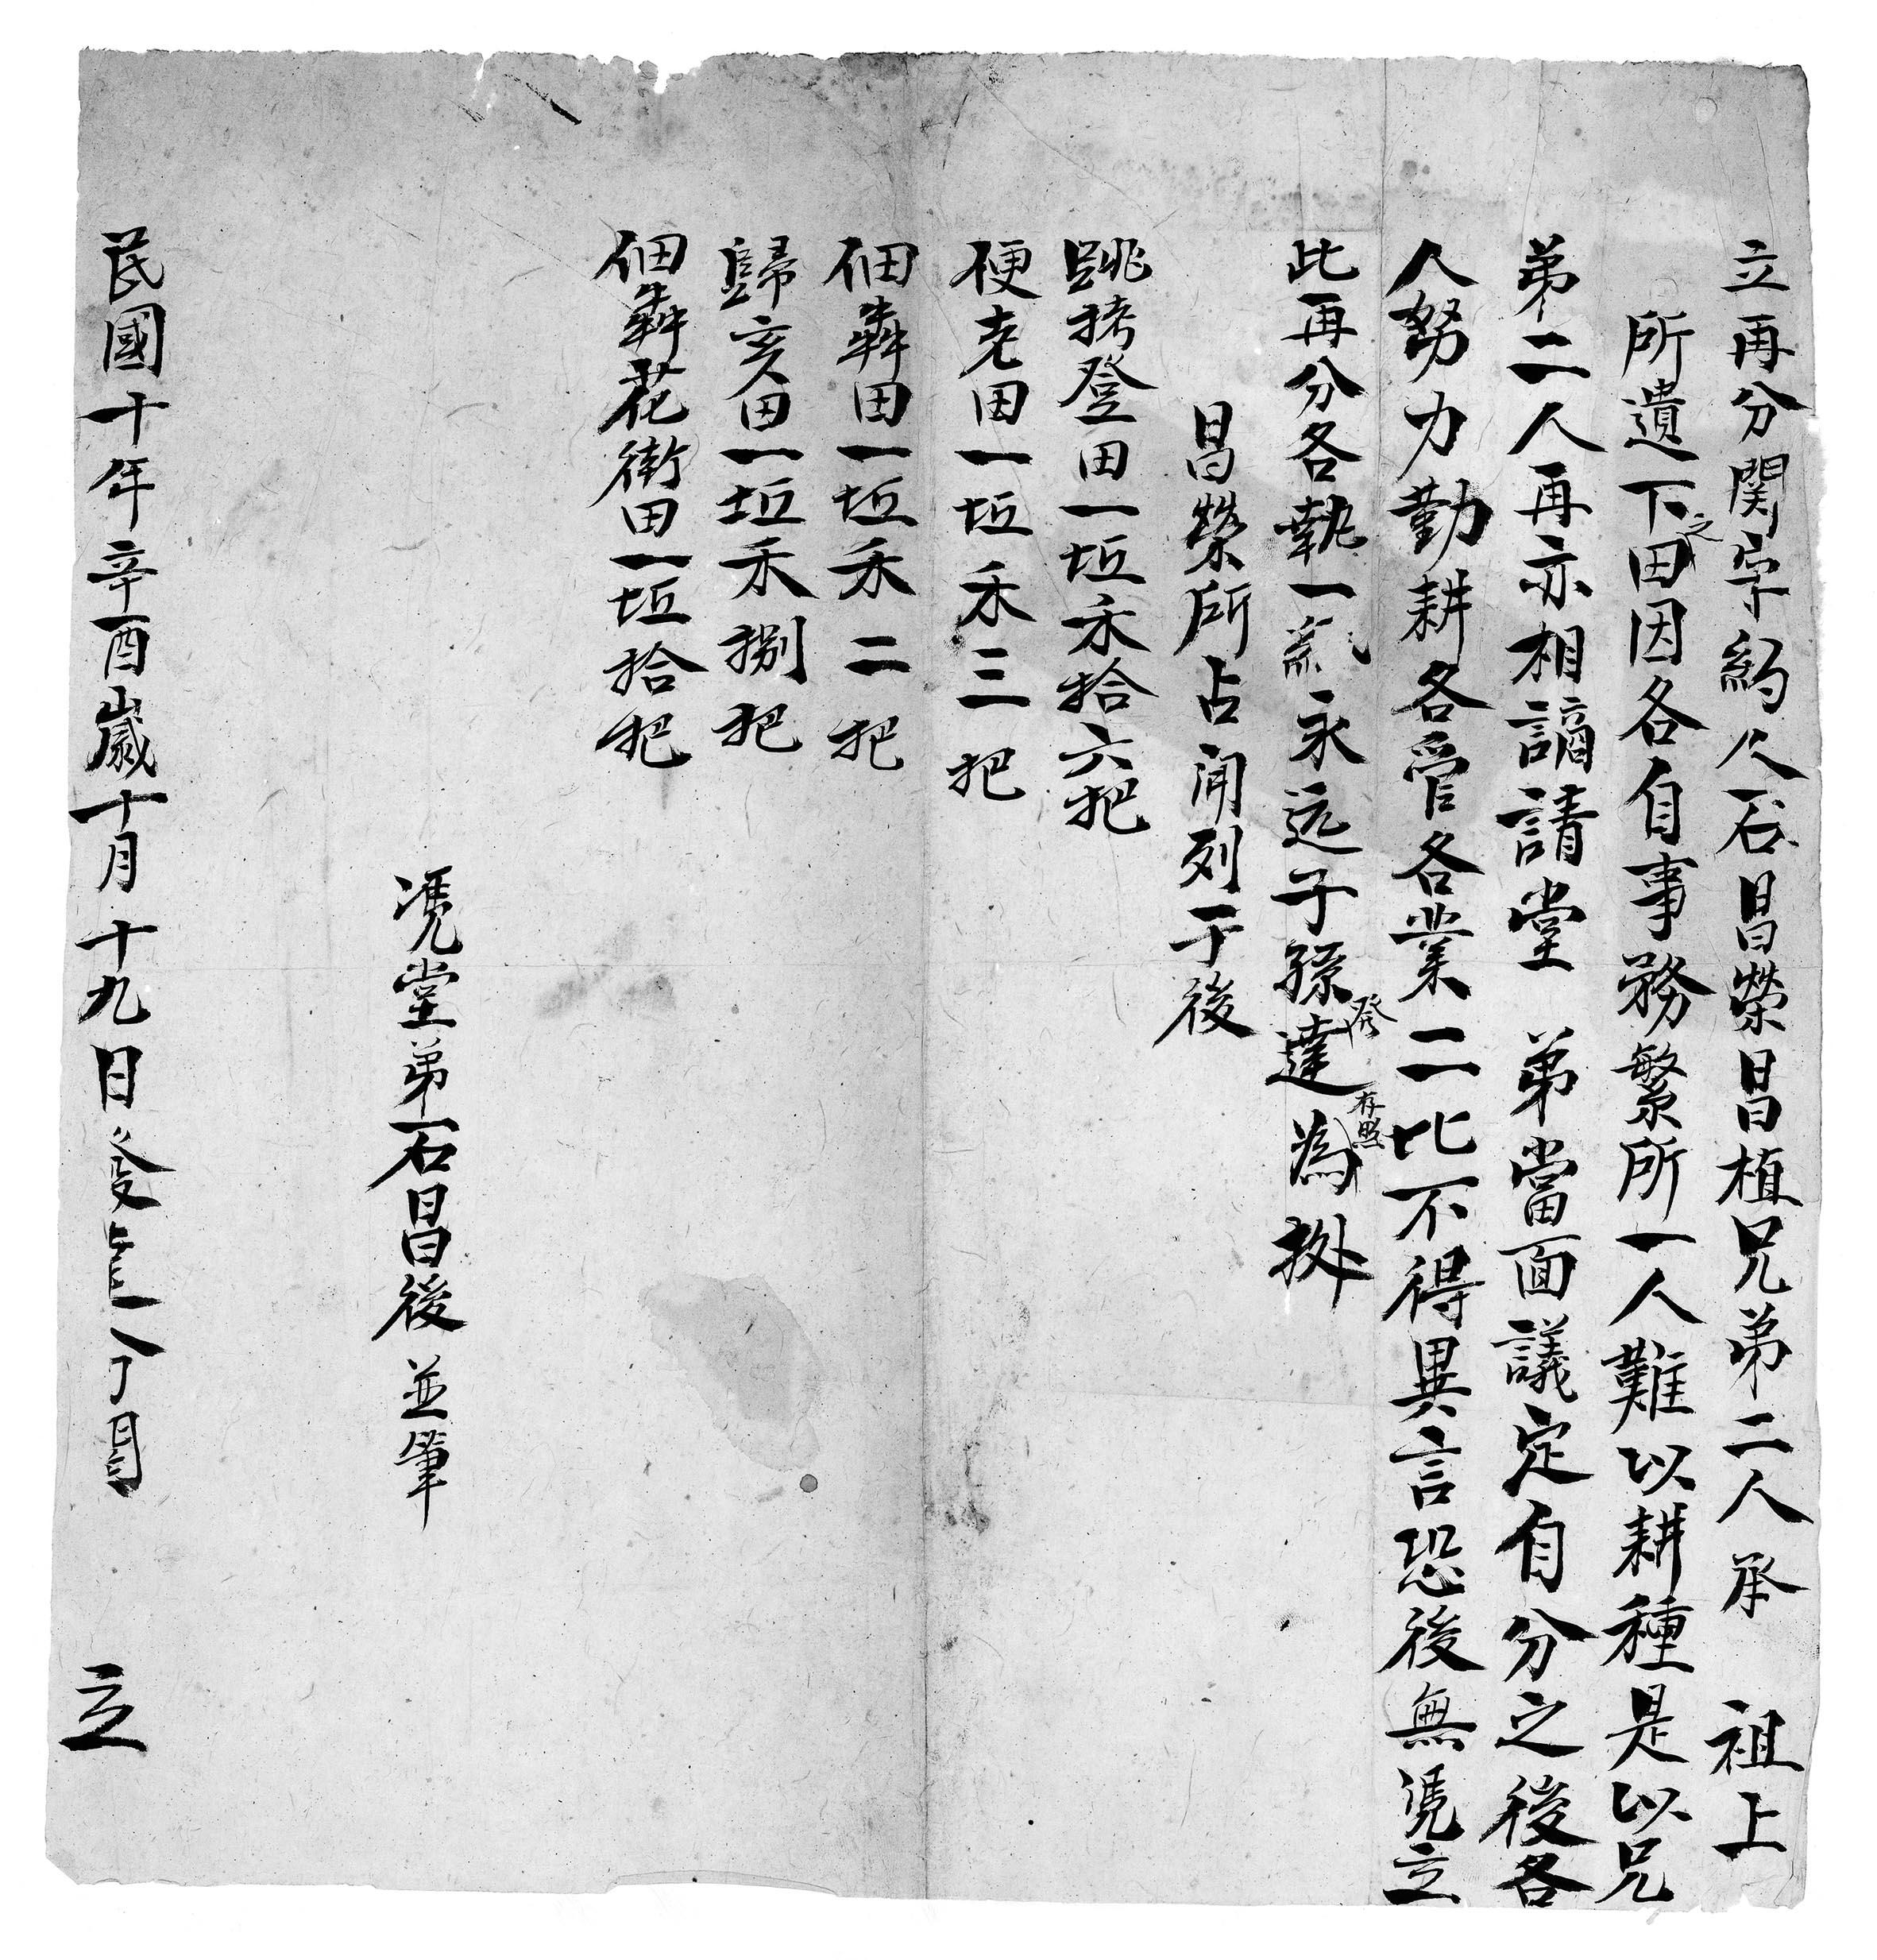 立再分関字約人石昌榮昌植兄弟二人承 祖上
所遺下之田因各自事務繁所一人難以耕種是以兄
弟二人再亦相謫請堂 弟當面議定自分之後各
人努力勤耕各管各業二比不得異言恐後無凴立
此再分各執一紙永远子孫發達存照為拠
昌榮所占開列于後
跳拷登田一坵禾拾六把
便老田一坵禾三把
佃犇田一坵禾二把
歸亥田一坵禾捌把
佃犇花街田一坵拾把
凴堂弟石昌後 並筆
民國十年辛酉歲十月十九日 立